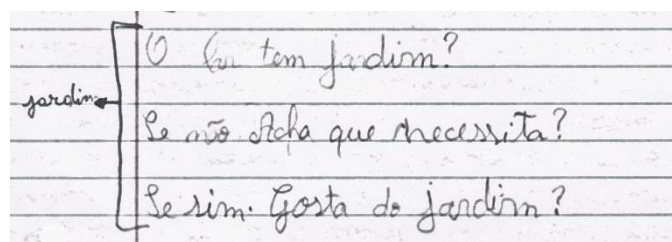 O lar tem jardim?
jardim
Se não Acha que necessita?
Se sim. Gosta do jardim?